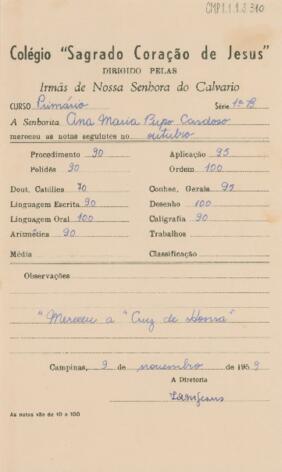 CMP1.1.1.3 310
Colégio "Sagrado Coração de Jesus"
DIRIGIDO PELAS
Irmãs de Nossa Senhora do Calvario
CURSO Primário Série 1ª B
A Senhorita Ana Maria Pupo Cardoso
mereceu as notas seguintes no outubro
Procedimento 90 Aplicação 95
Polidês 90 Ordem 100
Dout. Catilies 70 Conhec. Gerais 95
Linguagem Escrita 90 Desenho 100
Linguagem Oral 100 Caligrafia 90
Aritmética 90 Trabalhos
Média Classificação
Observações
"Mereceu a "Cruz de Honra"
Campinas, 9 de novembro de 1959
A Diretoria
As notas vão de 10 a 100